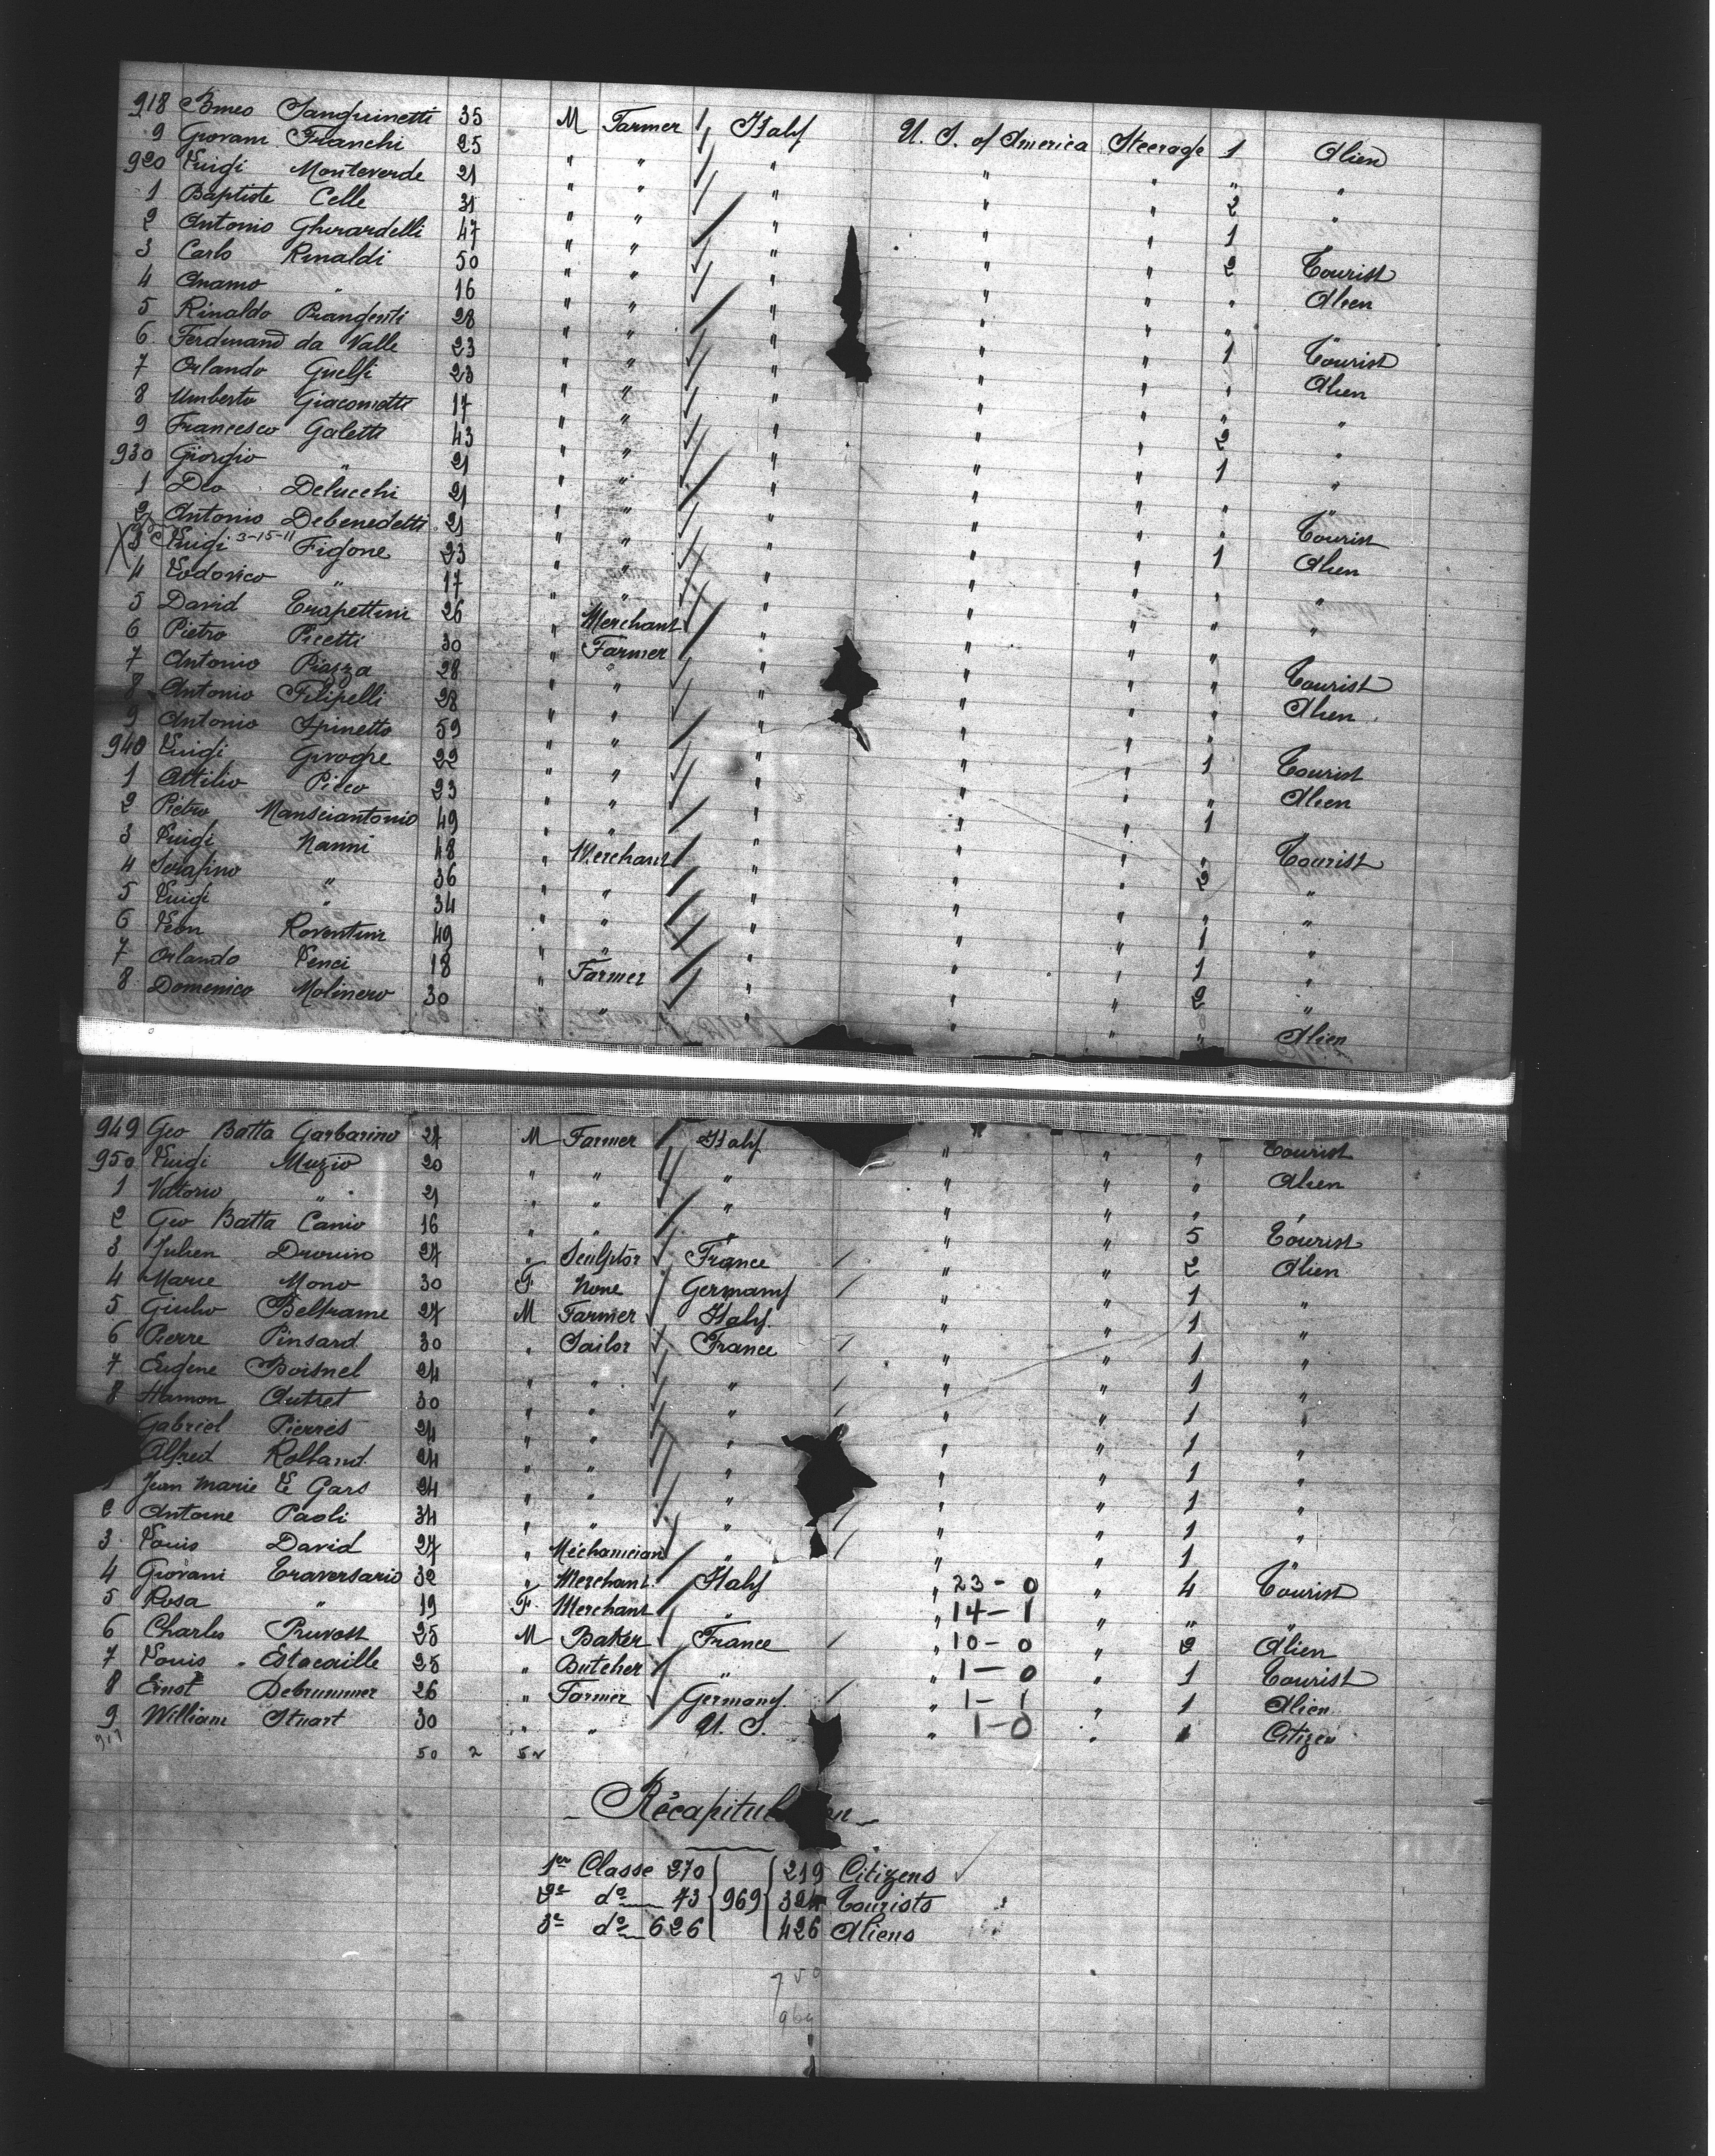 918 Bmeo Sanguinetti 35 M Farmer Italy U. S. of America Steerage 1 Alien
9 Giovani Franchi 25 " " " " " " "
920 Luigi Monteverde 21 " " " " " 2 "
1 Baptiste Celle 31 " " " " " 1
2 Antonio Gherardelli 47 " " " " " 2 Tourist
3 Carlo Rinaldi 50 " " " " " " Alien
4 16 " " " " " "
5 Rinaldo 28 " " " " " 1 Tourist
6 Ferdinand da Valle 23 " " " " " " Alien
7 Orlando Guelfi 23 " " " " " " "
8 Umberto Giacometti 17 " " " " " 2 "
9 Francesco Galetti 43 " " " " " 1 "
930 Giorgio " 21 " " " " " "
1 Dco Delucchi 21 " " " " " " Tourist
2 Antonio Debenedetti 21 " " " " " 1 Alien
3 Luigi 3-15-11 Figone 23 " " " " " " "
4 Lodovico " 17 " " " " " " "
5 David Trapettini 26 " Merchant " " " "
6 Pietro Picetti 30 " Farmer " " " " Tourist
7 Antonio Piazza 28 " " " " " " Alien
8 Antonio Filipelli 28 " " " " " " "
9 Antonio Spinetto 59 " " " " " 1 Tourist
940 Luigi 22 " " " " " " Alien
1 Attilio Picco 23 " " " " " 1
2 Pietro Mansciantonio 49 " " " " " " Tourist
3 Luigi Nanni 48 " Merchant " " " 2 "
4 Serafino " 36 " " " " " " "
5 Luigi " 34 " " " " " 1 "
6 Leon Roventini 49 " " " " " 1 "
7 Orlando Lenci 18 " Farmer " " " 2 "
8 Domenico Molinero 30 " " " " " " Alien
949 Gio Batta Garbarino 27 M Farmer Italy " " " Tourist
950 Luigi Muzio 20 " " " " " " Alien
1 Vittorio " 21 " " " " " " "
2 Gio Batta Canio 16 " " " " " 5 Tourist
3 Julien Drouin 27 " Sculptor France " " 2 Alien
4 Marie Mono 30 F. None Germany " " 1 "
5 Giulio Beltrame 27 M Farmer Italy " " 1 "
6 Pierre Pinsard 30 " Sailor France " " 1 "
7 Eugene Boisnel 24 " " " " " 1 "
8 Hamon Autret 30 " " " " " 1 "
Gabriel Pierrès 24 " " " " " 1 "
Alfred Rolland 24 " " " " " 1 "
1 Jean Marie Le Gars 24 " " " " " 1 "
2 Antoine Paoli 34 " " " " " 1 "
3 Louis David 27 " Méchanician " " " 1 "
4 Giovani Traversario 32 " Merchant Italy " 23-0 " 4 Tourist
5 Rosa " 19 F. Merchant " " 14-1 " " "
6 Charles Pruvost 25 M Baker France " 10-0 " 2 Alien
7 Louis Estacaille 28 " Butcher " " 1-0 " 1 Tourist
8 Ernst Debrunner 26 " Farmer Germany " 1-1 " 1 Alien
9 William Stuart 30 " " U. S. " 1-0 " 1 Citizen
50 2 52
Récapitul
1re Classe 270 219 Citizens
2e do 73 969 324 Tourists
3e do 626 426 Aliens
750
969